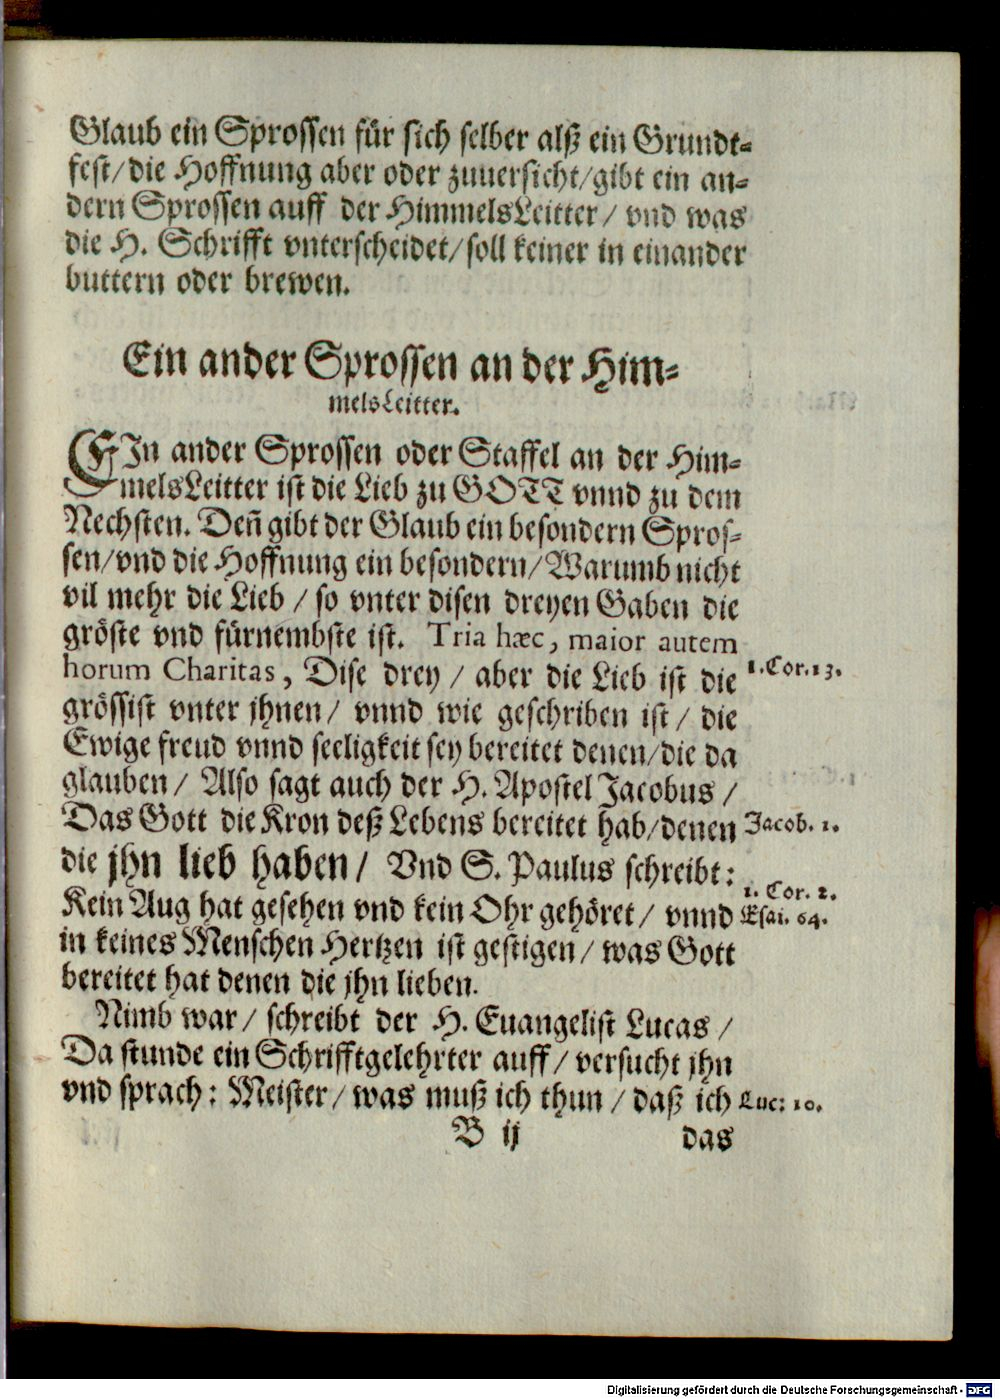 Glaub ein Sprossen für sich selber alß ein Grundt-
fest/die Hoffnung aber oder zuuersicht/gibt ein an-
dern Sprossen auff der HimmelsLeitter/ vnd was
die H. Schrifft vnterscheidet/soll keiner in einander
buttern oder brewen.
Ein ander Sprossen an der Him-
melsLeitter.
EIn ander Sprossen oder Staffel an der Him-
melsLeitter ist die Lieb zu GOTT vnnd zu dem
Nechsten. Deñ gibt der Glaub ein besondern Spros-
sen/vnd die Hoffnung ein besondern/Warumb nicht
vil mehr die Lieb / so vnter disen dreyen Gaben die
gröste vnd fürnembste ist. Tria hæc, maior autem
horum Charitas, Dise drey / aber die Lieb ist die 1.Cor.13.
grössist vnter jhnen/ vnnd wie geschriben ist/ die
Ewige freud vnnd seeligkeit sey bereitet denen/die da
glauben/ Also sagt auch der H. Apostel Jacobus /
Das Gott die Kron deß Lebens bereitet hab/denen Jacob. 1.
die jhn lieb haben/ Vnd S. Paulus schreibt:
1. Cor. 2.
Kein Aug hat gesehen vnd kein Ohr gehöret/ vnnd Esai. 64.
in keines Menschen Hertzen ist gestigen/ was Gott
bereitet hat denen die jhn lieben.
Nimb war/ schreibt der H. Euangelist Lucas /
Da stunde ein Schrifftgelehrter auff/ versucht jhn
vnd sprach: Meister/ was muß ich thun / daß ich Luc: 10.
B ij das
Digitalisierung gefördert durch die Deutsche Forschungsgemeinschaft - DFG